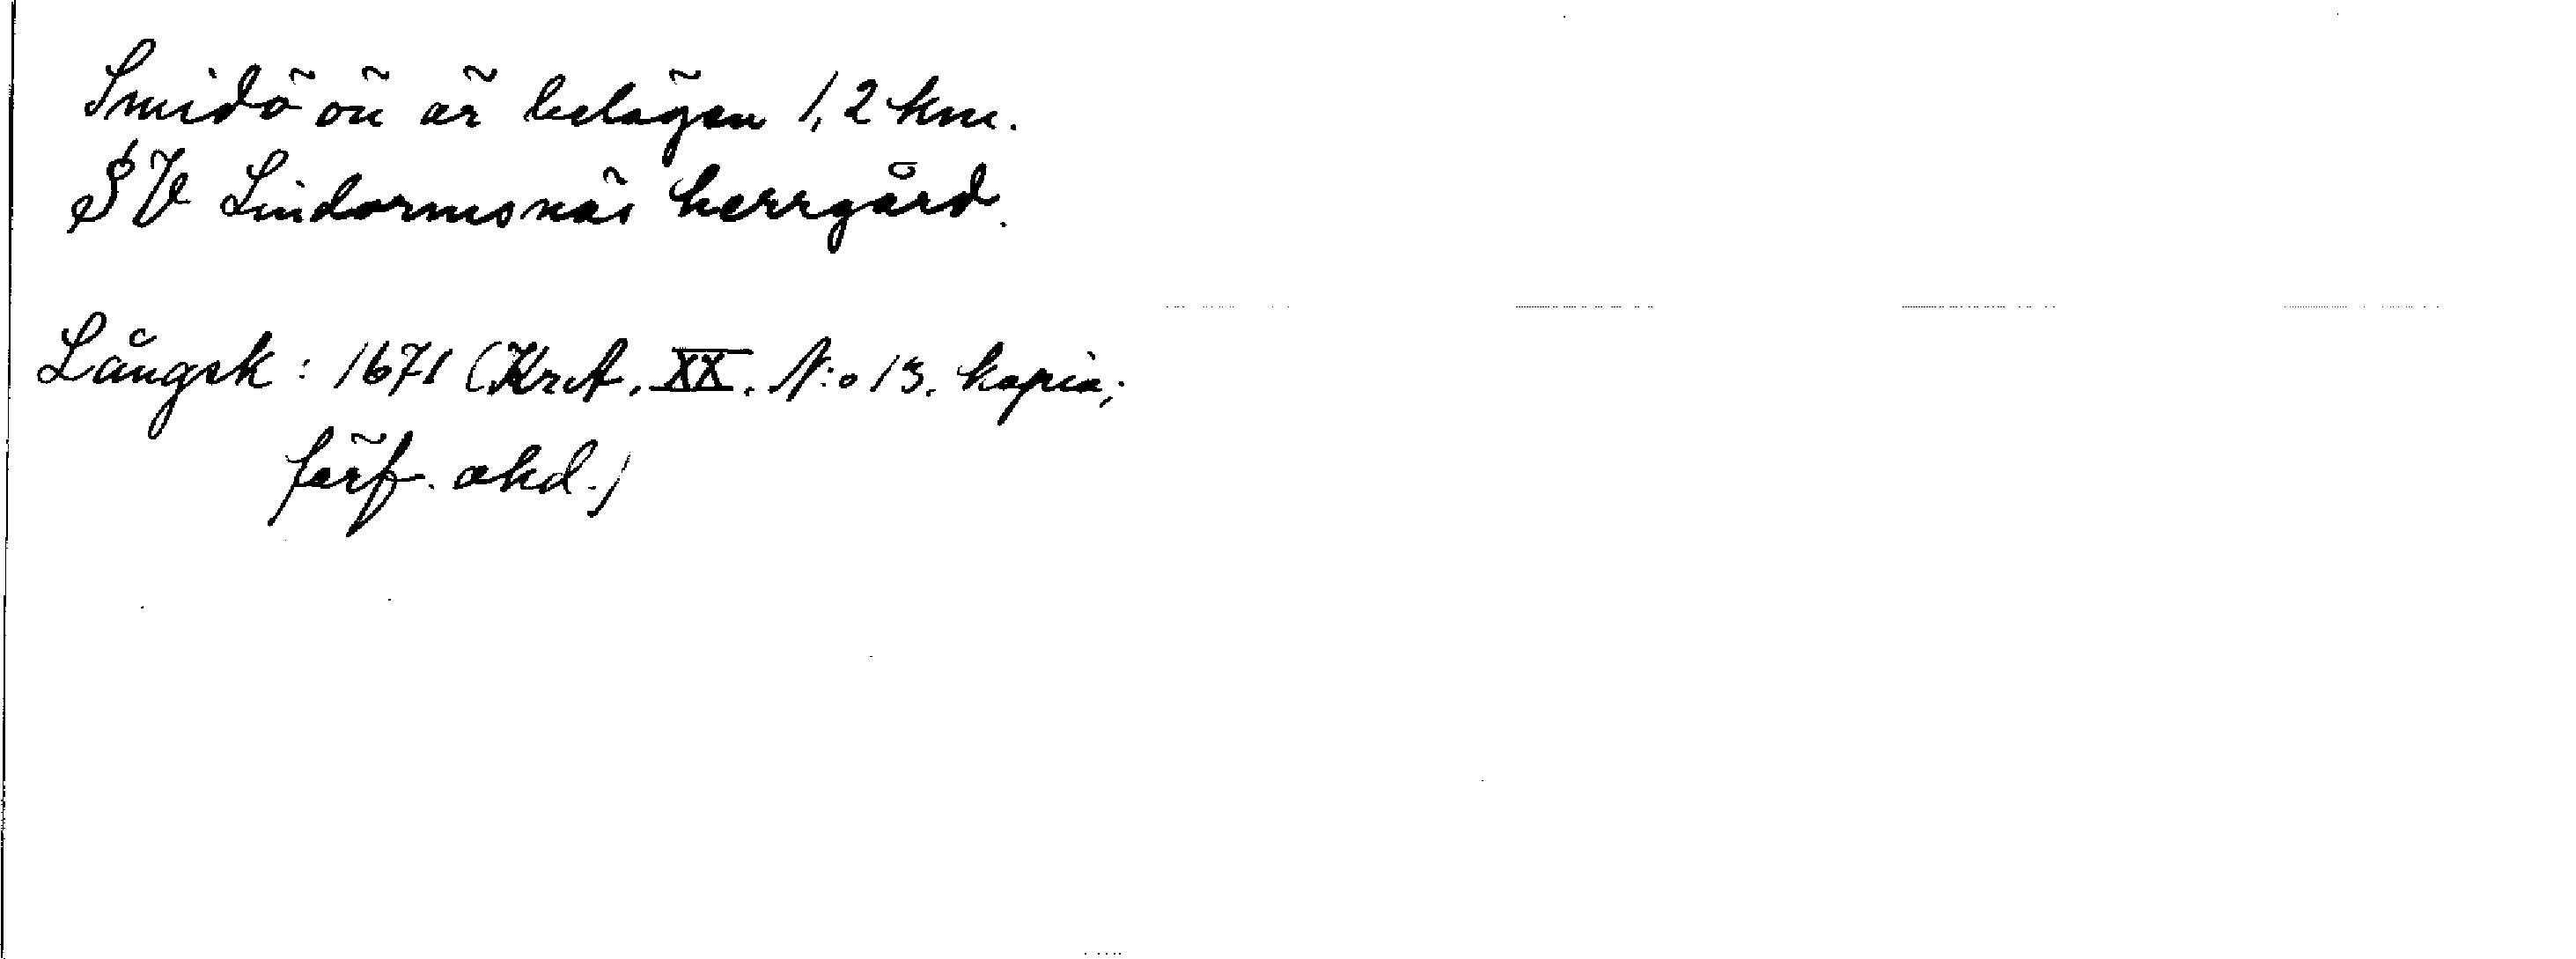 Smidö ön är belägen 1,2 km.
SV Lindormsnäs herrgård.
Långsk: 1671 (KrA. XX. N:o 13. kopia;
förf. okd.)